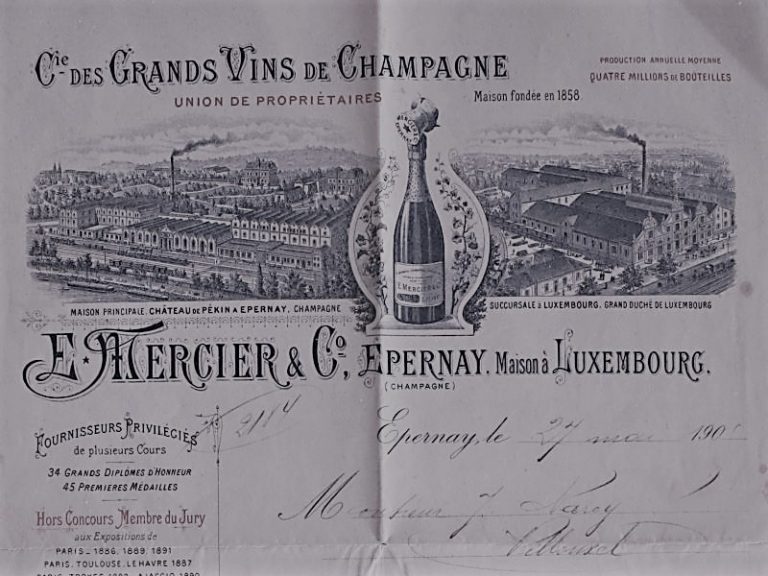 Cie DES GRANDS VINS DE CHAMPAGNE
UNION DE PROPRIÉTAIRES
PRODUCTION ANNUELLE MOYENNE
QUATRE MILLIONS DE BOUTEILLES
Maison fondée en 1858
E. MERCIER & Co
MAISON PRINCIPALE. CHÂTEAU DE PÉKIN A EPERNAY, CHAMPAGNE
SUCCURSALE à LUXEMBOURG, GRAND DUCHÉ DE LUXEMBOURG
E. MERCIER & Co, EPERNAY, Maison à LUXEMBOURG.
(CHAMPAGNE)
2184
FOURNISSEURS PRIVILÉGIÉS
de plusieurs Cours
Epernay, le 27 mai 190
34 GRANDS DIPLOMES D'HONNEUR
45 PREMIERES MÉDAILLES
Monsieur J.
Hors Concours Membre du Jury
aux Expositions de
PARIS - 1886, 1889, 1891
PARIS, TOULOUSE, LE HAVRE 1887